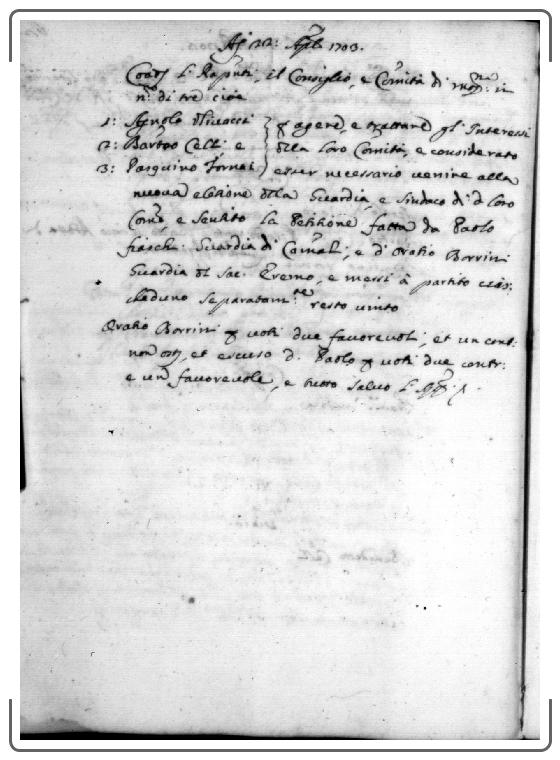 Adj 22: Aple 1703.
Coadj. li Raputi, il Consiglio, e Comità di mogna: in
no: di tre cioè
1: Agnolo Olivacci
2: Bartoo Celli e
3: Pasquino Fornai
p agere, e trattare gl'Interessi
della loro Comità, e considerato
esser necessario venire alla
nuova eletione della Guardia, e Sindaco di do loro
Como, e sentito la Petitione fatta da Paolo
fiaschi Guardia di Camal:, e d'Oratio Borrini
Guardia del Sac: Eremo, e messi à partito cias:
cheduno separatamte: resto vinto
Oratio Borrini p voti due favorevoli, et un cont:
non ost, et escuso d. Paolo p voti due contr:
e un favorevole, e tutto salvo